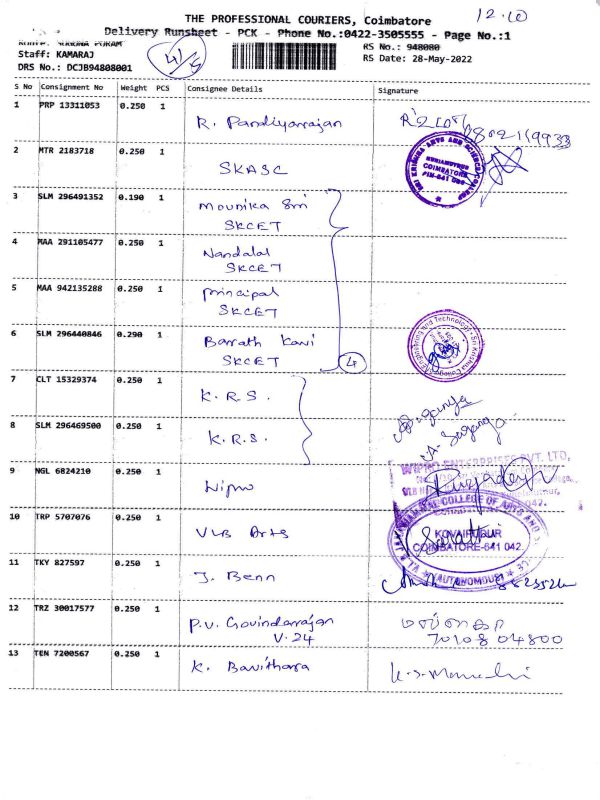 THE PROFESSIONAL COURIERS, Coimbatore
12.10
Delivery Runsheet - PCK - Phone No.:0422-3505555 - Page No.:1
RS No.: 948080
Staff: KAMARAJ
4/5
RS Date: 28-May-2022
DRS No.: DCJB94808001
S No Consignment No Weight PCS Consignee Details Signature
1 PRP 13311053 0.250 1 R. Pandiyarrajan
9802119933
2 MTR 2183718 0.250 1 SKASC
SRI KRISHNA ARTS AND SCIENCE COLLEGE
KUNIAMUTHUR
COIMBATORE
PIN-641 008
3 SLM 296491352 0.190 1 Mounika Sri
SKCET
4 MAA 291105477 0.250 1 Nandalal
SKCET
5 MAA 942135288 0.250 1 principal
SKCET
6 SLM 296440846 0.290 1 Barrath Kavi
SKCET 4
Engineering and Technology Sri Krishna College
7 CLT 15329374 0.250 1 K. R. S.
8 SLM 296469500 0.250 1 K. R. S.
9 NGL 6824210 0.250 1 Wipro
WIPRO ENTERPRISES PVT. LTD,
10 TRP 5707076 0.250 1 VLB Arts
JANAKIAMMAL COLLEGE OF ARTS AND
KOVAIPUDUR
COIMBATORE-641 042.
(AUTONOMOUS)
11 TKY 827597 0.250 1 J. Benn
12 TRZ 30017577 0.250 1 P.V. Govindarrajan
V.24
7010804800
13 TEN 7200567 0.250 1 K. Bavithara